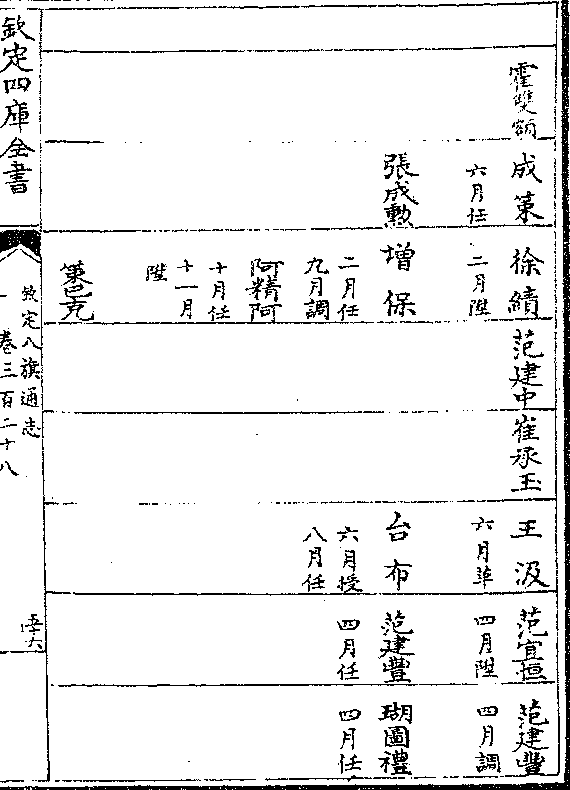 霍雙額
成䇿
六月任
張成勲
徐績
二月陞
增保
二月任
九月調
阿精阿
十月任
十一月
陞
䇿巴克
范建中
崔承玉
王汲
六月革
台布
六月授
八月任
范宜恒
四月陞
范建豐
四月任
范建豐
四月調
瑚圖禮
四月任
欽定四庫全書
欽定八旗通志
卷三百二十八